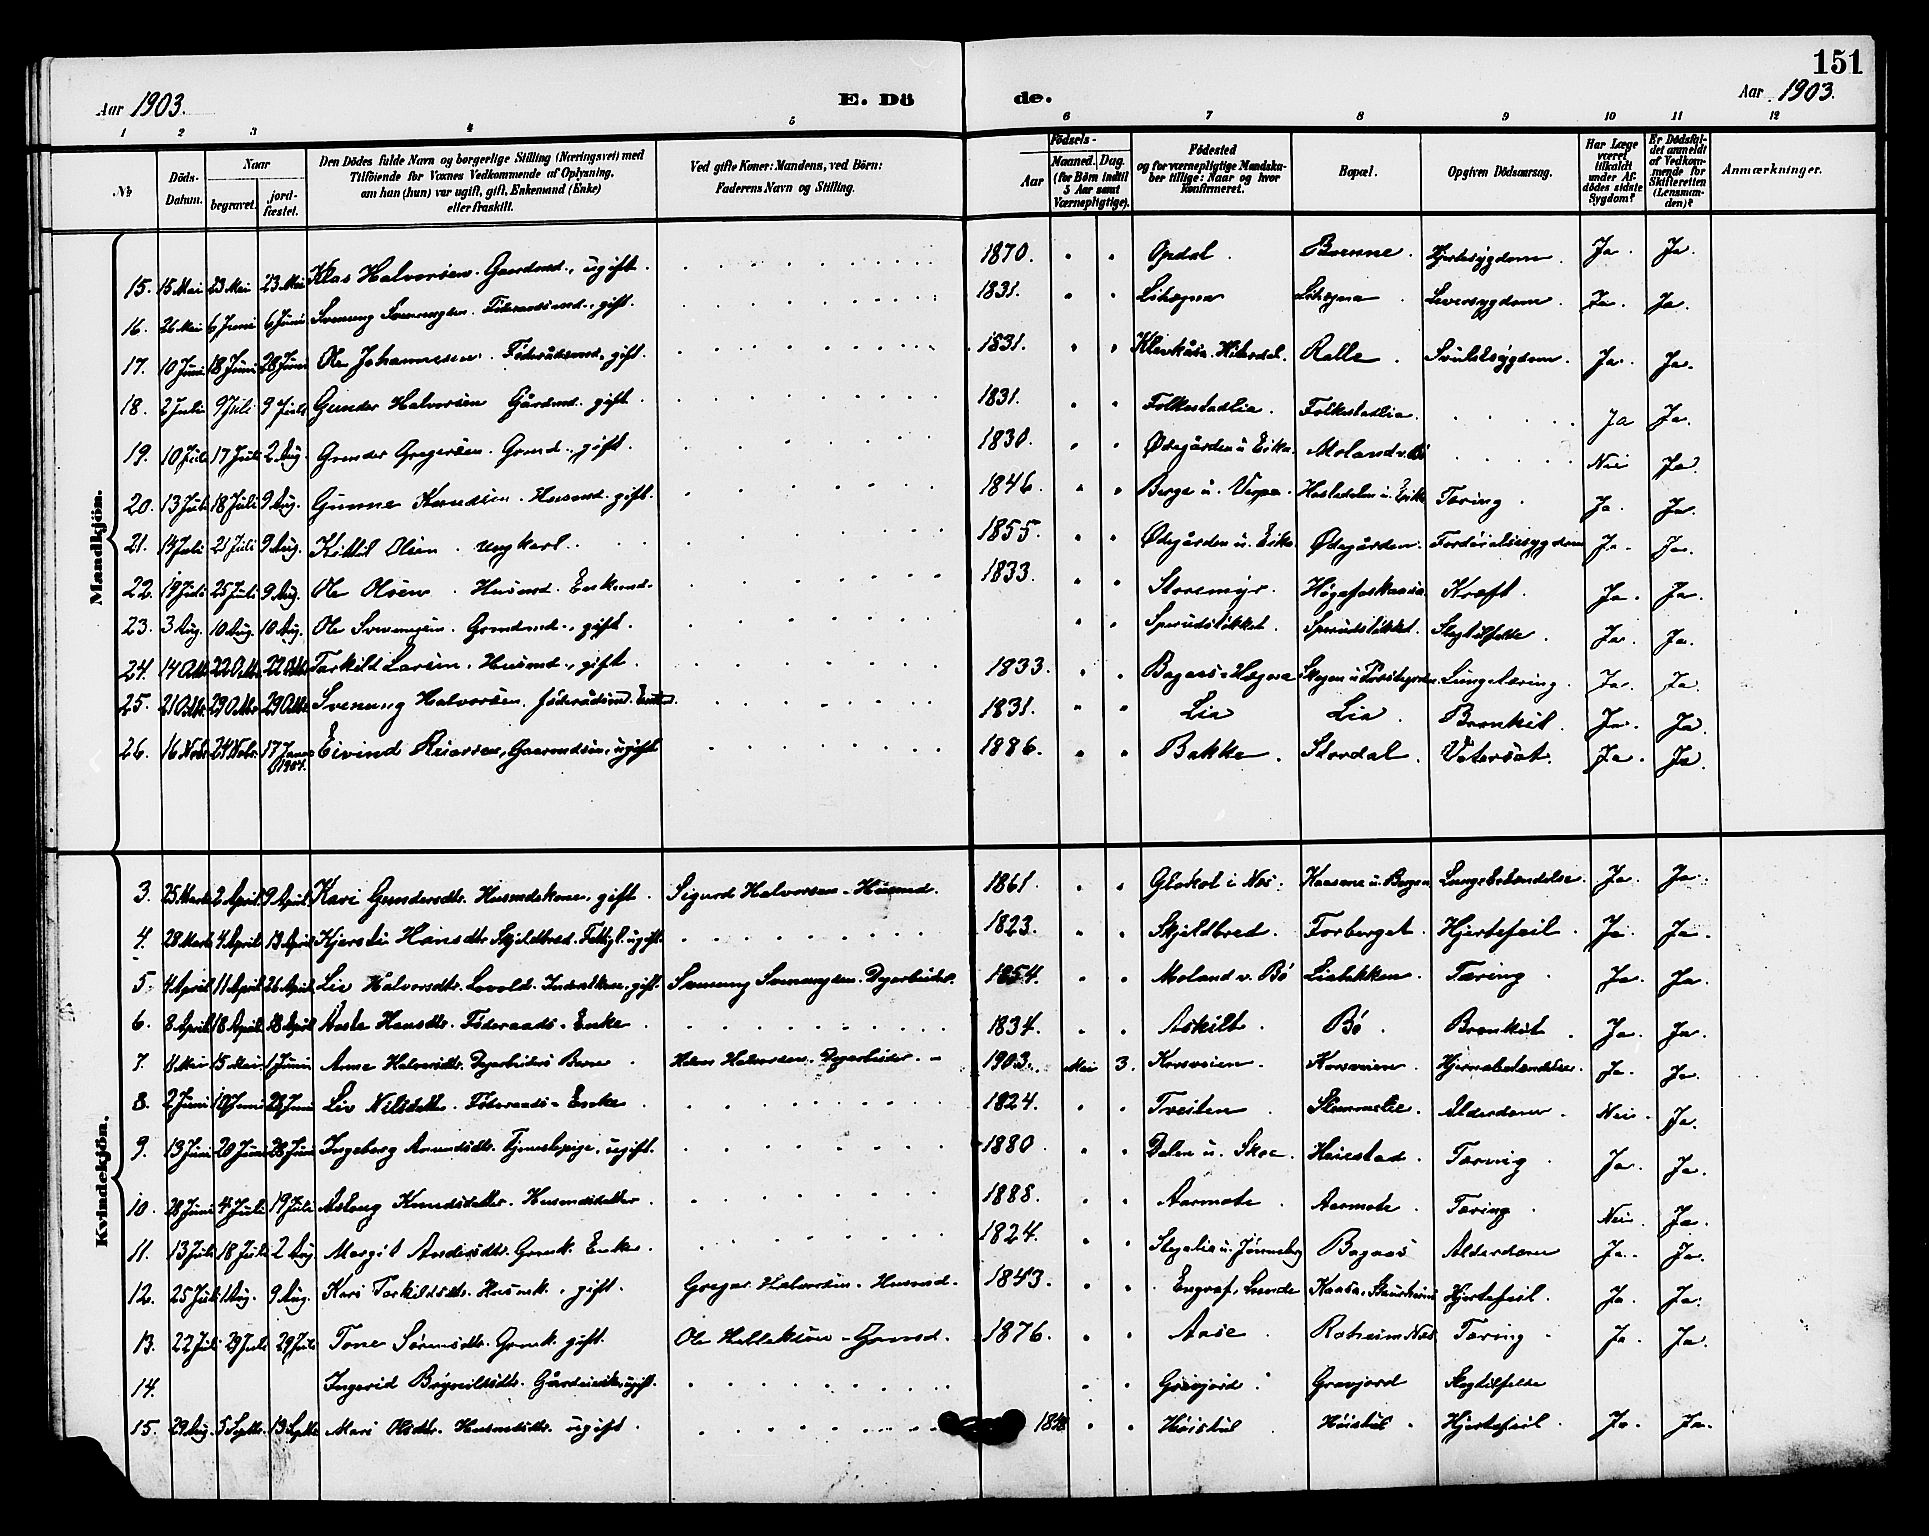 151
Aar 1903.
E. Dö de.
Aar 1903.
1 2 3 4 5 6 7 8 9 10 11 12
№
Döds-Datum.
Naar
begravet.
jord-fæstet.
Den Dödes fulde Navn og borgerlige Stilling (Næringsvei) med
Tilföiende for Voxnes Vedkommende af Oplysning.
om han (hun) var ugift, gift, Enkemand (Enke)
eller fraskilt.
Ved gifte Koner: Mandens, ved Börn:
Faderens Navn og Stilling.
Födsels-
Aar
Maaned. Dag.
(for Börn indtil
5 Aar samt
Værnepligtige).
Födested
og for værnepligtige Mandska-
ber tillige: Naar og hvor
Konfirmeret.
Bopæl.
Opgiven Dödsaarsag.
Har Læge
været
tilkaldt
under Af-
dödes sidste
Sygdom?
Er Dödsfal-
det anmeldt
af Vedkom-
mende for
Skifteretten
(Lensman-
den)?
Anmærkninger.
Mandkjön.
15. 15 Mai 23 Mai 23 Mai Klas Halvorsen. Gaardmd., ugift. 1870. Opdal. Brenne. Hjertesygdom. Ja. Ja.
16. 26 Mai 6 Juni 6 Juni Svenung Svenungsen. Föderaadsmd., gift. 1831. Lihægna Lihægna Leversygdom. Ja. Ja.
17. 10 Juni 18 Juni 28 Juni Ole Johannesen. Föderådsmd. gift. 1831. Hiterdal. Ralle. Svulstsygdom. Ja. Ja.
18. 2 Juli 9 Juli 9 Juli Gunder Halvorsen Gårdmd. gift. 1831. Folkestadlia. Folkestadlia. Ja Ja.
19. 10 Juli 17 Juli 2 Aug. Gunder Gregersen. Grmd., gift. 1830. Ødegården u. Eika. Moland v. Bö Nei Ja.
20. 13 Juli 18 Juli 9 Aug. Gunne Knudsen. Husmd. gift. 1846. Berge u. Verpe. Hasledalen u. Eika Tæring. Ja. Ja.
21. 14 Juli 21 Juli 9 Aug. Kittil Olsen. Ungkarl. 1855. Ødegården u. Eika. Ødegården. Fordöielsesygdom Ja. Ja.
22. 19 Juli 25 Juli 9 Aug. Ole Olsen. Husmd. Enkemd. 1833. Storemyr. Kræft. Ja. Ja.
23. 3 Aug. 10 Aug. 10 Aug. Ole Svenungsen. Grmdmd., gift. Sperudstökket. Sperudstökket. Slagtilfelde. Ja. Ja.
24. 14 Oktbr 22 Oktbr 22 Oktbr Tarkild Larsen. Husmd., gift. 1833. Bagaas Hægna Lungetæring. Ja. Ja.
25. 21 Oktbr 29 Oktbr 29 Oktbr Svenung Halvorsen. föderådsmd. 1831. Lia Lia. Bronkit. Ja. Ja.
26. 16 Novbr 24 Novbr. 17 Januar 1904. Eivind Gaardmdsön, ugift 1886. Bakke. Stordal. Vatersot. Ja. Ja.
Kvindekjön.
3. 25 Marts 2 April 9 April Kari Gundersdtr. Husmdskone, gift. Sigurd Halvorsen. Husmd. 1861. i Nes. Kaasene u. Lungebetændelse. Ja. Ja.
4. 28 Marts 4 April 13 April Kjersti Hansdtr Skjeldbred. Fattigl. ugift. 1823. Skjeldbred. Forberget. Hjertefeil. Ja. Ja.
5. 4 April 11 April 26 April Liv Halvorsdtr. Lovold. gift. Svenung Svenungsen. Dagarbeider. 1854. Moland v. Bö Liabakken. Tæring. Ja. Ja.
6. 8 April 18 April 18 April Aaste Hansdtr. Föderaads-Enke. 1834. Askilt. Bö. Bronkit. Ja. Ja.
7. 8 Mai 15 Mai 1 Juni Anne Halvorsdtr. Dagarbeiders Barn. Hans Halvorsen. Dagarbeider. 1903. Mai 3. Korsveien. Korsveien. Hjernebetændelse. Ja. Ja.
8. 2 Juni 10 Juni 28 Juni Liv Nilsdatter. Föderaads-Enke. 1824. Treiten. Slimmelie. Alderdom. Nei. Ja.
9. 13 Juni 20 Juni 28 Juni Ingeborg Amundsdtr. Tjenestepige, ugift. 1880. Dalen u. Skoe. Haiestad. Tæring. Ja. Ja.
10. 28 Juni 4 Juli 19 Juli Aslaug Knudsdatter. Husmdsdatter. 1888. Aarmote. Aarmote. Tæring. Nei. Ja.
11. 13 Juli 18 Juli 2 Aug. Margit Andersdtr. Grmk. Enke. 1824. Bagaas Alderdom Ja. Ja.
12. 25 Juli 1 Aug. 9 Aug. Kari Tarkildsdtr. Husmk., gift. Gregar Halvorsen. Husmd. 1843. Engraf, Lunde Kaasa, Hjertefeil. Ja. Ja.
13. 22 Juli 29 Juli 29 Juli Tone Sörensdtr. Grmk. gift. Ole Halleksön. Grmd. 1876. Aase. Roheim Nes. Tæring Ja. Ja.
14. Ingerid Brynildsdtr. ugift. Gravjord. Gravjord Slagtilfelde
15. 29 Aug. 5 Septbr. 13 Septbr Mari Olsdtr. Husmdsdtr. ugift. 1848 Höistul Höistul. Hjertefeil. Ja. Ja.